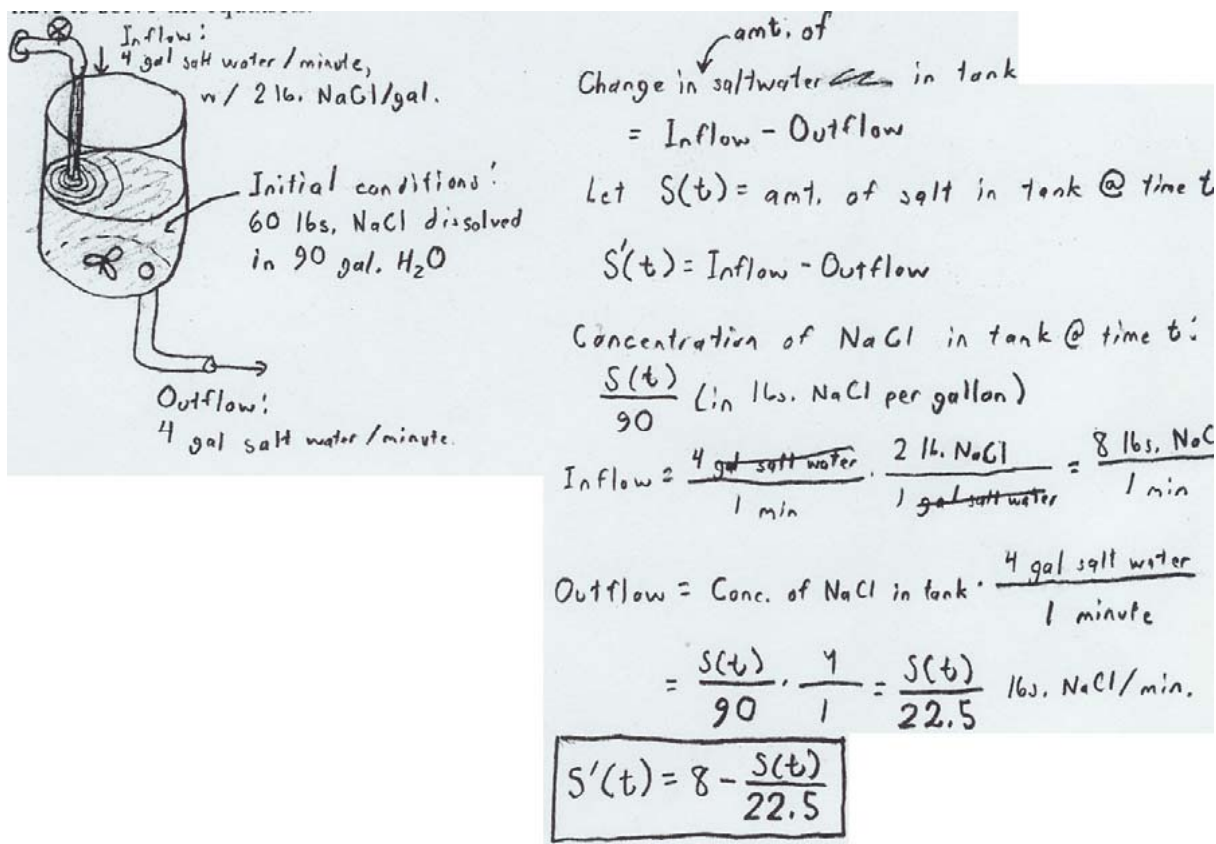 Inflow:
4 gal salt water/minute,
w/ 2 lb. NaCl/gal.
Initial conditions:
60 lbs. NaCl dissolved
in 90 gal. H₂O
Outflow:
4 gal salt water/minute.
amt. of
Change in saltwater in tank
= Inflow - Outflow
Let S(t) = amt. of salt in tank @ time t
S'(t) = Inflow - Outflow
Concentration of NaCl in tank @ time t:
S(t)/90 (in lbs. NaCl per gallon)
Inflow = 4 gal salt water/1 min · 2 lb. NaCl/1 gal salt water = 8 lbs. NaC/1 min
Outflow = Conc. of NaCl in tank · 4 gal salt water/1 minute
= S(t)/90 · 4/1 = S(t)/22.5 lbs. NaCl/min.
S'(t) = 8 - S(t)/22.5